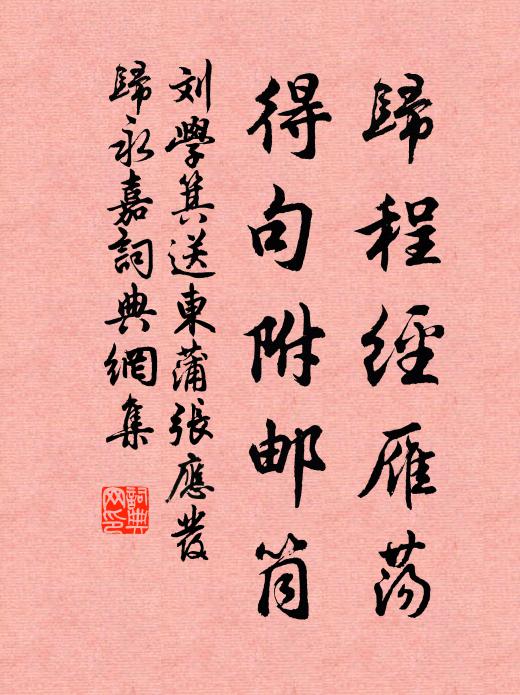 歸程經雁荡
得句附邮筒
刘學箕送東蒲張應發
歸永嘉詞典網集
詞典
网印